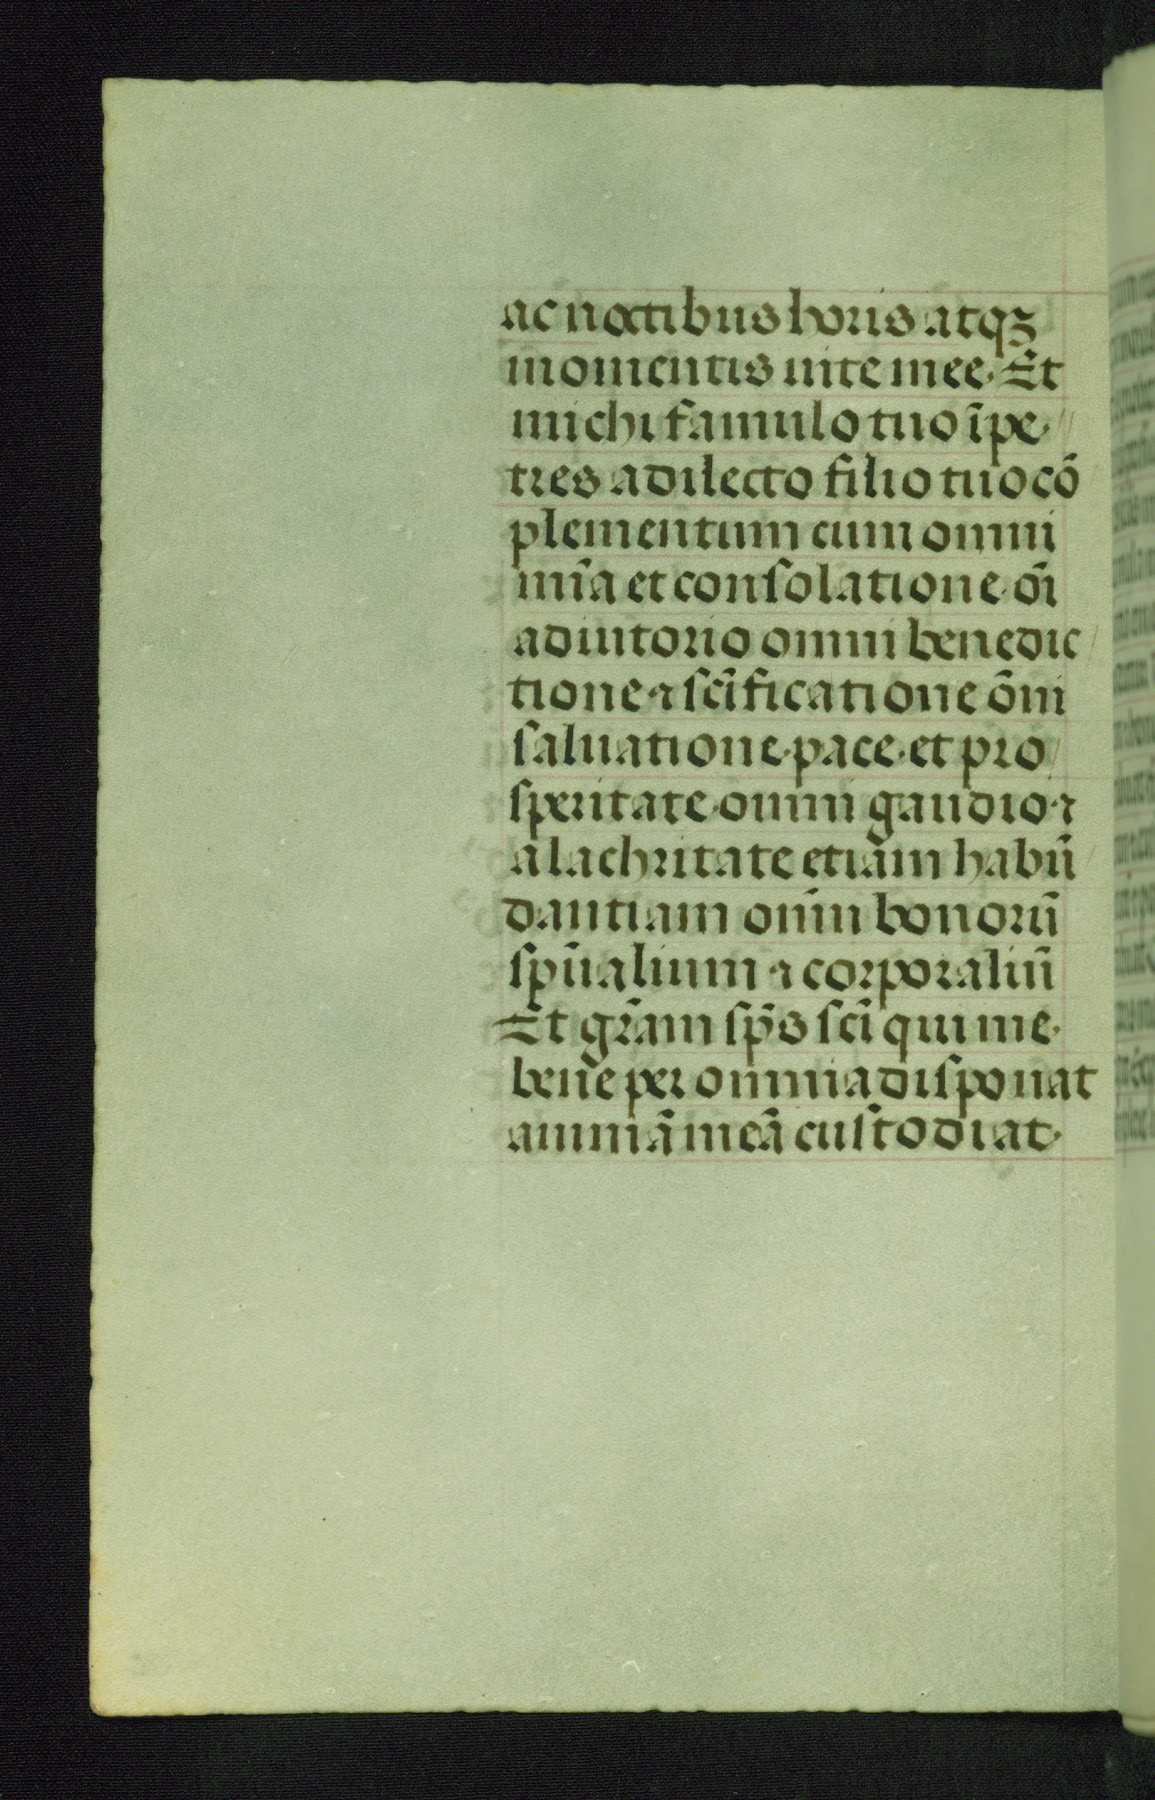 ac noctibus horis atqꝫ
momentis uite mee· Et
michi famulo tuo īpe·//
tres a dilecto filio tuo cō/
plementum cum omni
mīa et consolatione· oī
adiutorio omni benedic/
tione· ⁊ scīficatione ōni
saluatione· pace· et pro/
speritate· omni gaudio· ⁊
alachritate etiām habū/
dantiam onīm bonorū
spūalium ⁊ corporaliū
Et grām sps̄ scī qui me·
bene per omnia disponat
animā meā custodiat·